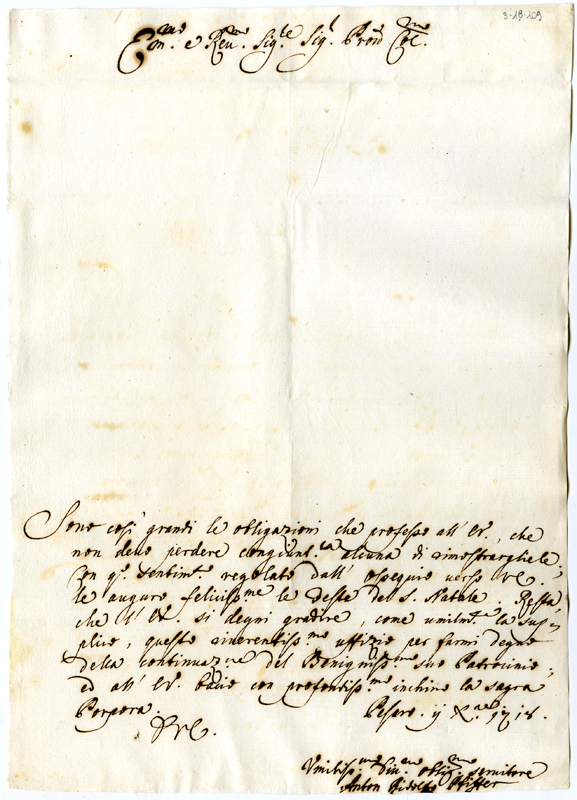 3-18-109
Em.mo e Rev.mo Sig.re Sig.r Pron Col.mo
Sono così grandi le obligazioni che professo all' Er., che
non devo perdere congiunt.ra alcuna di rimostrargliele;
Con q.o sentim.to regolato dall' ossequio verso VE.
le auguro feliciss.me le Feste del S. Natale. Resta
che l' Er. si degni gradire, come umilm.te la sup=
plico, questo riverentiss.mo uffizio per farmi degno
della continuaz.ne del Benigniss.mo suo Patrocinio;
ed all' Er. bacio con profondiss.mo inchino la sagra
Porpora. Pesaro. ij X.re 1718.
Umiliss.mo Div.mo oblig.mo servitore
Anton Pfiffer